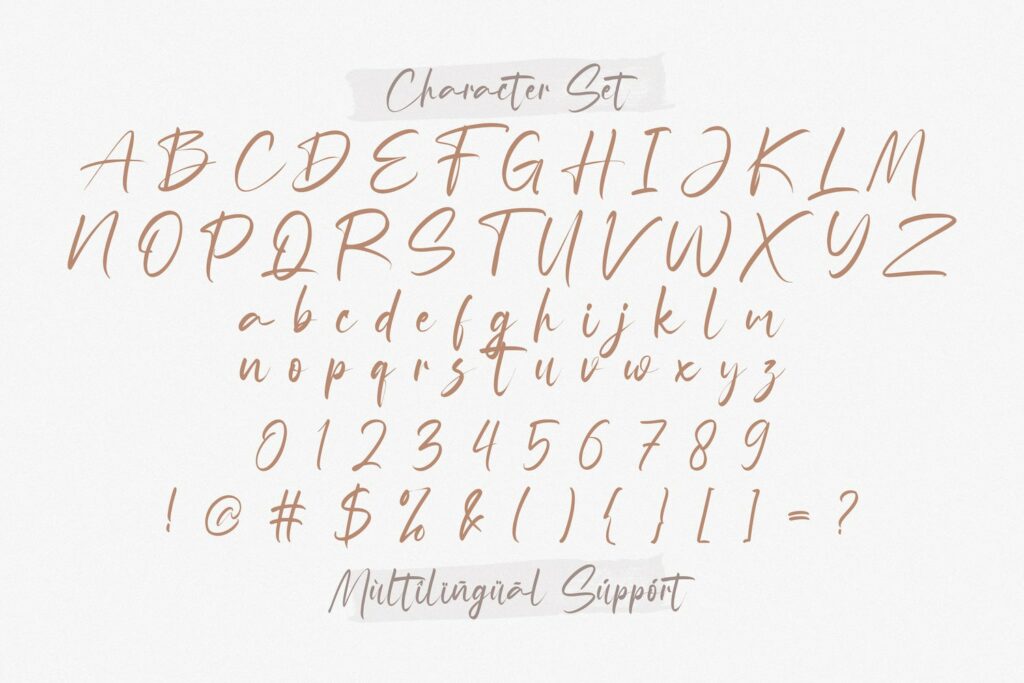 Character Set
A B C D E F G H I J K L M
N O P Q R S T U V W X Y Z
a b c d e f g h i j k l m
n o p q r s t u v w x y z
0 1 2 3 4 5 6 7 8 9
! @ # $ % & ( ) { } [ ] = ?
Mùltílïñgüāl Súppórt